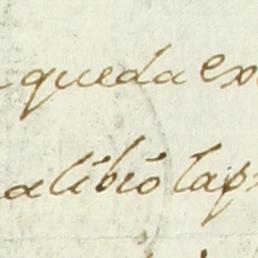 queda ex
alibió la p